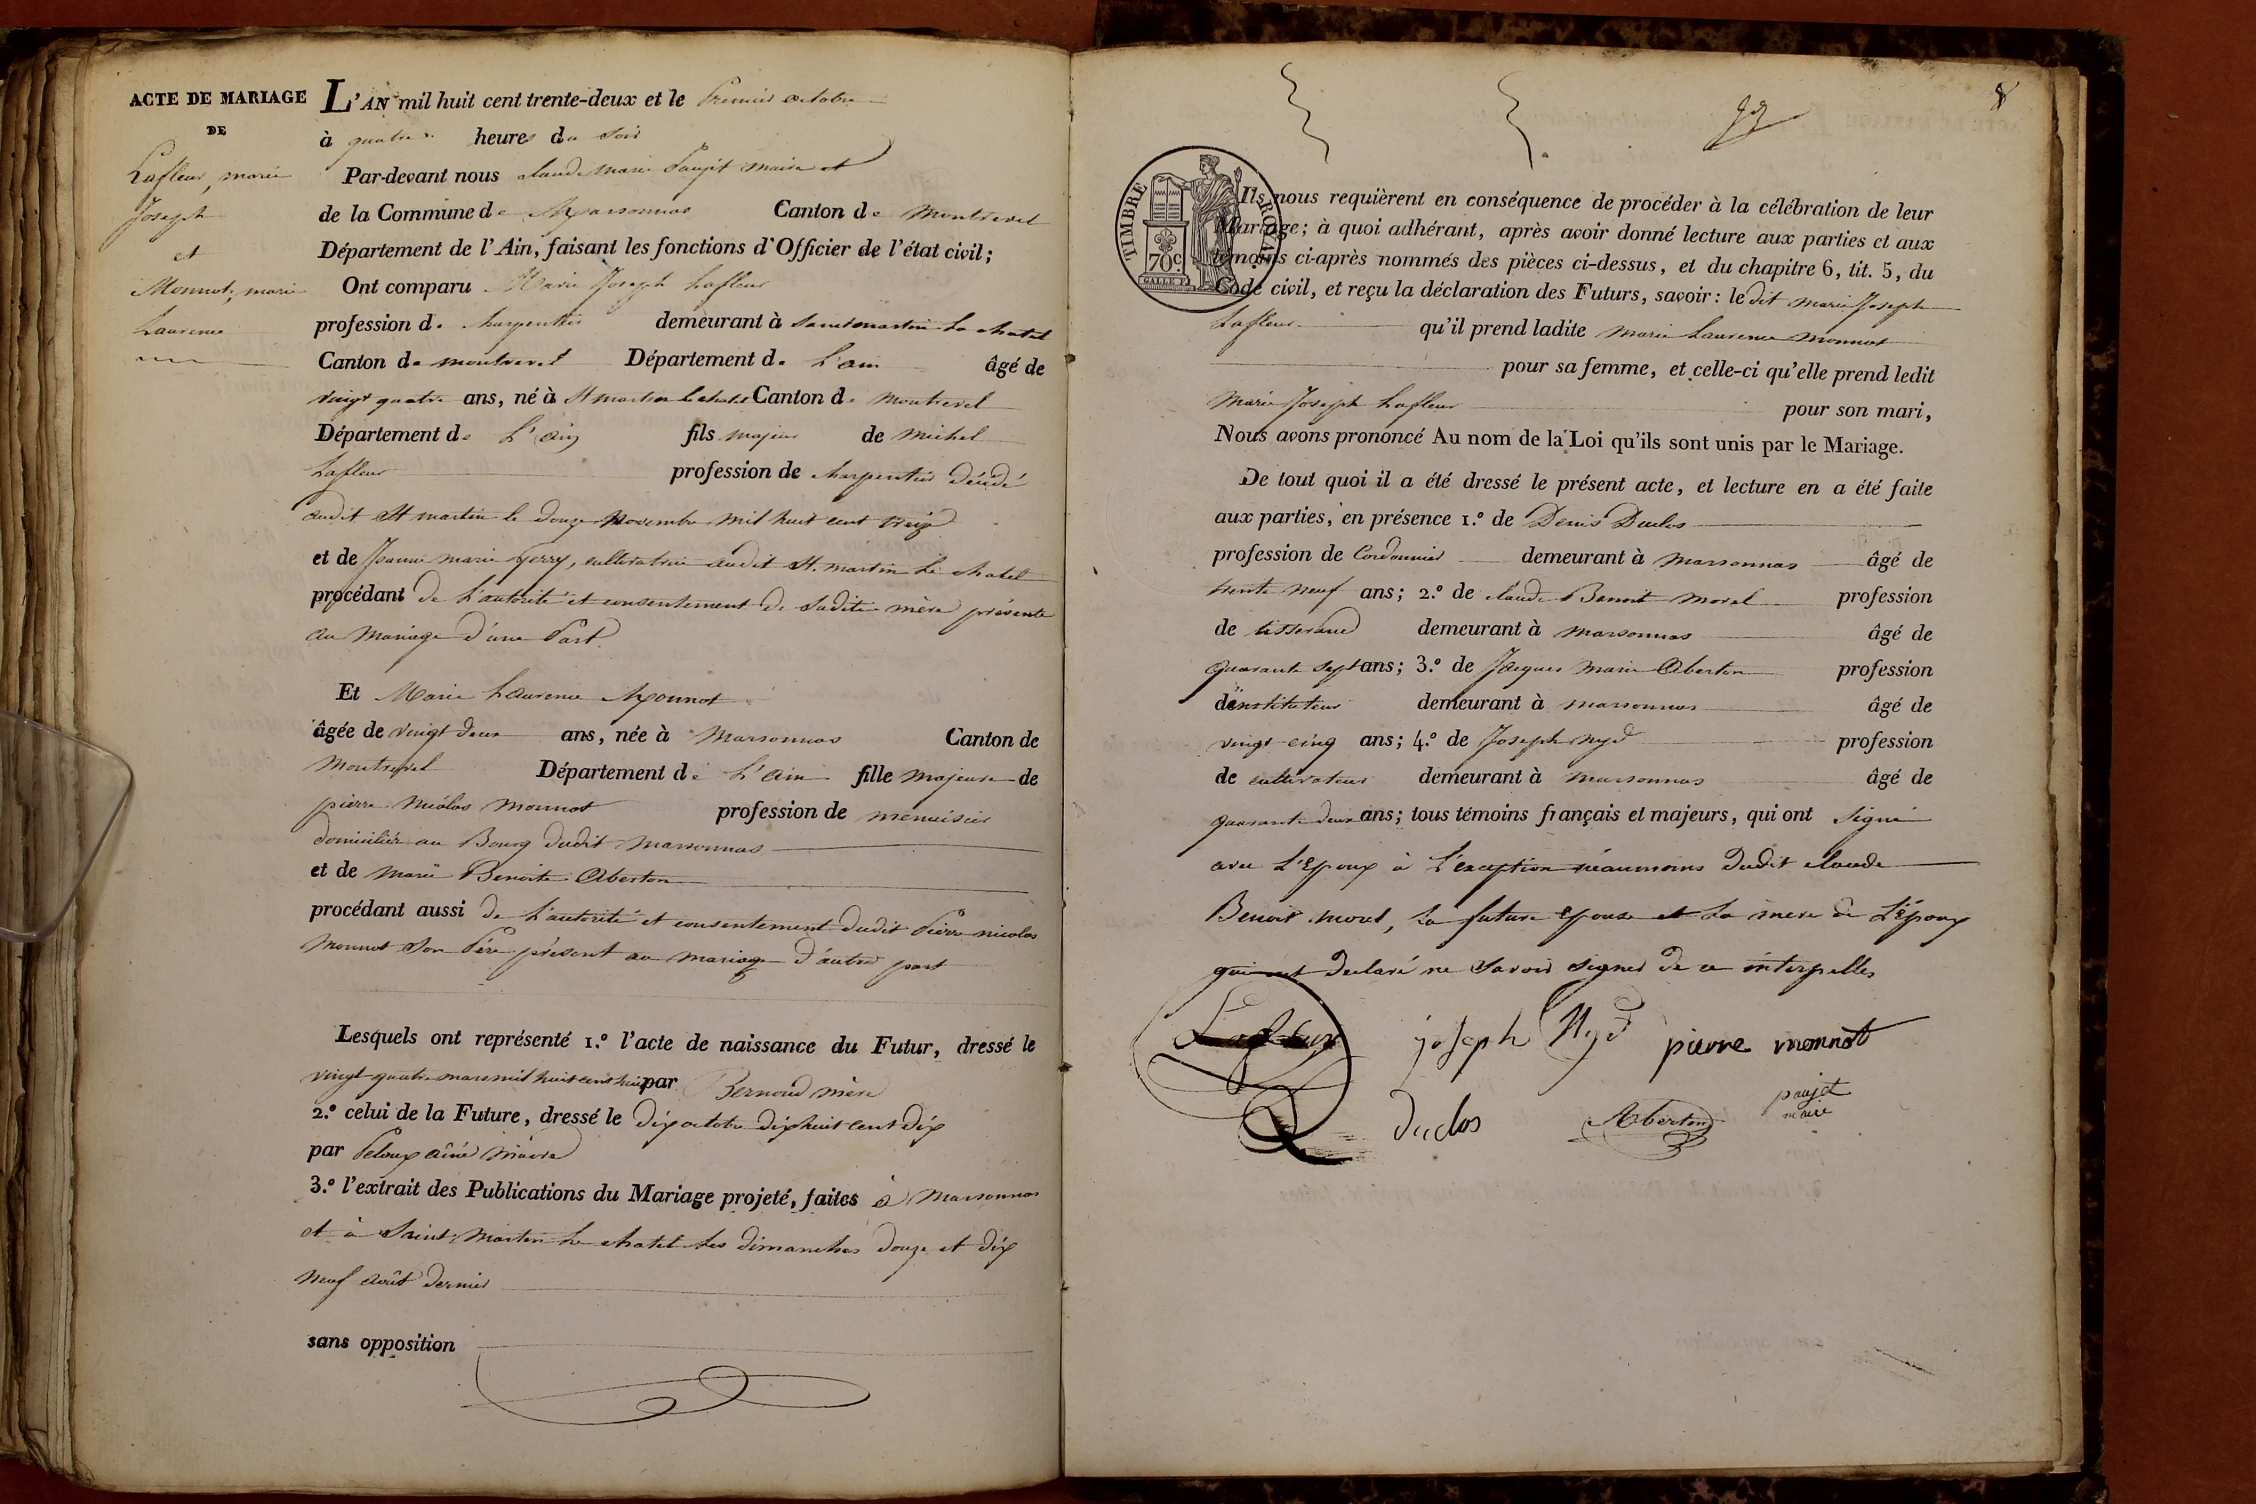 ACTE DE MARIAGE
DE
Lafleur, marie
Joseph
et
Monnot, marie
Laurence
L'AN mil huit cent trente-deux et le Premier octobre
à quatre heures du soir
Par-devant nous claude marie Paujet maire et
de la Commune de Marsonnas Canton de Montrevel
Département de l'Ain, faisant les fonctions d'Officier de l'état civil;
Ont comparu Marie Joseph Lafleur
profession de charpentier demeurant à Saint martin Le chatel
Canton de montrevel Département de L'ain âgé de
vingt quatre ans, né à St martin le chatel Canton de Montrevel
Département de L'ain fils majeur de Michel
Lafleur profession de charpentier décédé
audit St martin le douze Novembre mil huit cent vingt
et de Jeanne marie ferry, cultivatrice audit St. martin Le chatel
procédant de L'autorité et consentement de Sadite mère présente
au Mariage d'une Part.
Et Marie Laurence Monnot
âgée de vingt deux ans, née à Marsonnas Canton de
Montrevel Département de L'ain fille majeure de
pierre Nicolas Monnot profession de menuisier
domicilié au Bourg dudit Marsonnas
et de Marie Benoite Aberton
procédant aussi de L'autorité et consentement dudit Pierre nicolas
Monnot Son Père présent au mariage d'autre part
Lesquels ont représenté 1.º l'acte de naissance du Futur, dressé le
vingt quatre mars mil huit cent huit par Bernoud mère
2.º celui de la Future, dressé le dix octobre dix huit cent dix
par Peloux ainé
3.º l'extrait des Publications du Mariage projeté, faites à Marsonnas
et à Saint Martin Le chatel Les dimanches douze et dix
neuf août dernier
sans opposition
8
TIMBRE ROYAL
70c.
Ils nous requièrent en conséquence de procéder à la célébration de leur
Mariage; à quoi adhérant, après avoir donné lecture aux parties et aux
témoins ci-après nommés des pièces ci-dessus, et du chapitre 6, tit. 5, du
Code civil, et reçu la déclaration des Futurs, savoir: le dit marie Joseph
Lafleur qu'il prend ladite marie Laurence Monnot
pour sa femme, et celle-ci qu'elle prend ledit
Marie Joseph Lafleur pour son mari,
Nous avons prononcé Au nom de la Loi qu'ils sont unis par le Mariage.
De tout quoi il a été dressé le présent acte, et lecture en a été faite
aux parties, en présence 1.º de Denis Duclos
profession de Cordonnier demeurant à Marsonnas âgé de
trente neuf ans; 2.º de claude Benoit Morel profession
de tisserand demeurant à Marsonnas âgé de
quarante sept ans; 3.º de Jacques Marie Aberton profession
d'instituteur demeurant à Marsonnas âgé de
vingt cinq ans; 4.º de Joseph Nyd profession
de cultivateur demeurant à Marsonnas âgé de
quarante deux ans; tous témoins français et majeurs, qui ont signé
avec L'Epoux à L'exception néanmoins dudit claude
Benoit Morel, La future Epouse et La mère de L'Epoux
qui ont déclaré ne savoir signer de ce interpellés
Lafleur joseph Nyd pierre monnot
Duclos Aberton paujet
maire